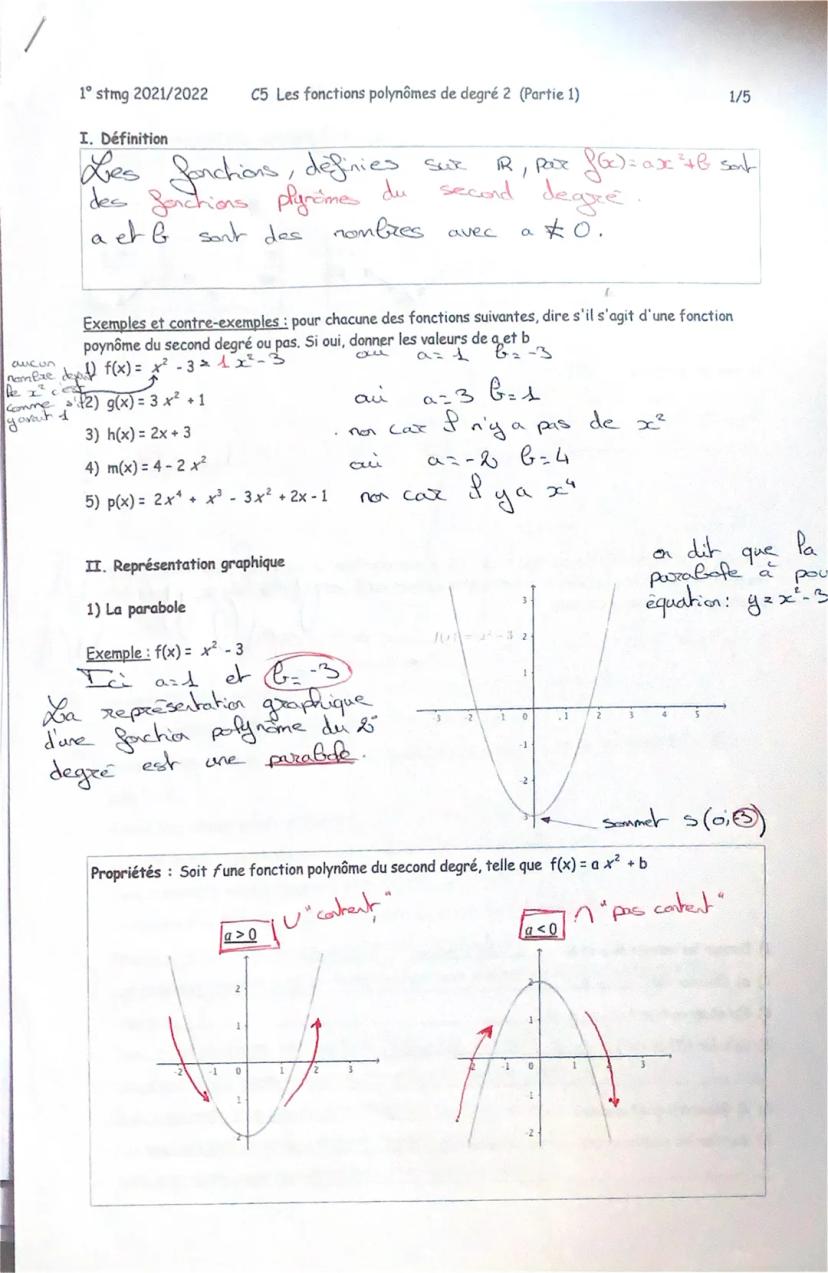 1° stmg 2021/2022 C5 Les fonctions polynômes de degré 2 (Partie 1) 1/5
I. Définition
Les fonctions, définies sur ℝ, par f(x)=ax²+b sont
des fonctions plynômes du second degré.
a et b sont des nombres avec a ≠ 0.
Exemples et contre-exemples : pour chacune des fonctions suivantes, dire s'il s'agit d'une fonction
poynôme du second degré ou pas. Si oui, donner les valeurs de a et b
1) f(x) = x² - 3 = 1x²-3 oui a=1 b=-3
aucun
nombre
le x² c'est
comme s'il
y avait 1
2) g(x) = 3 x² + 1 oui a=3 b=1
3) h(x) = 2x + 3 non car il n'y a pas de x²
4) m(x) = 4 - 2 x² oui a=-2 b=4
5) p(x) = 2x⁴ + x³ - 3x² + 2x - 1 non car il y a x⁴
II. Représentation graphique
on dit que la
parabole à pou
équation: y=x²-3
1) La parabole
f(x) = x² - 3
Exemple : f(x) = x² - 3
Ici a=1 et b=-3
La représentation graphique
d'une fonction polynôme du 2°
degré est une parabole.
3
2
1
-3 -2 -1 0 1 2 3 4 5
-1
-2
-3
sommet S(0;-3)
Propriétés : Soit f une fonction polynôme du second degré, telle que f(x) = a x² + b
a > 0 ∪ "content" a < 0 ∩ "pas content"
2 2
1 1
-2 -1 0 1 2 3 -2 -1 0 1 2 3
-1 -1
-2 -2